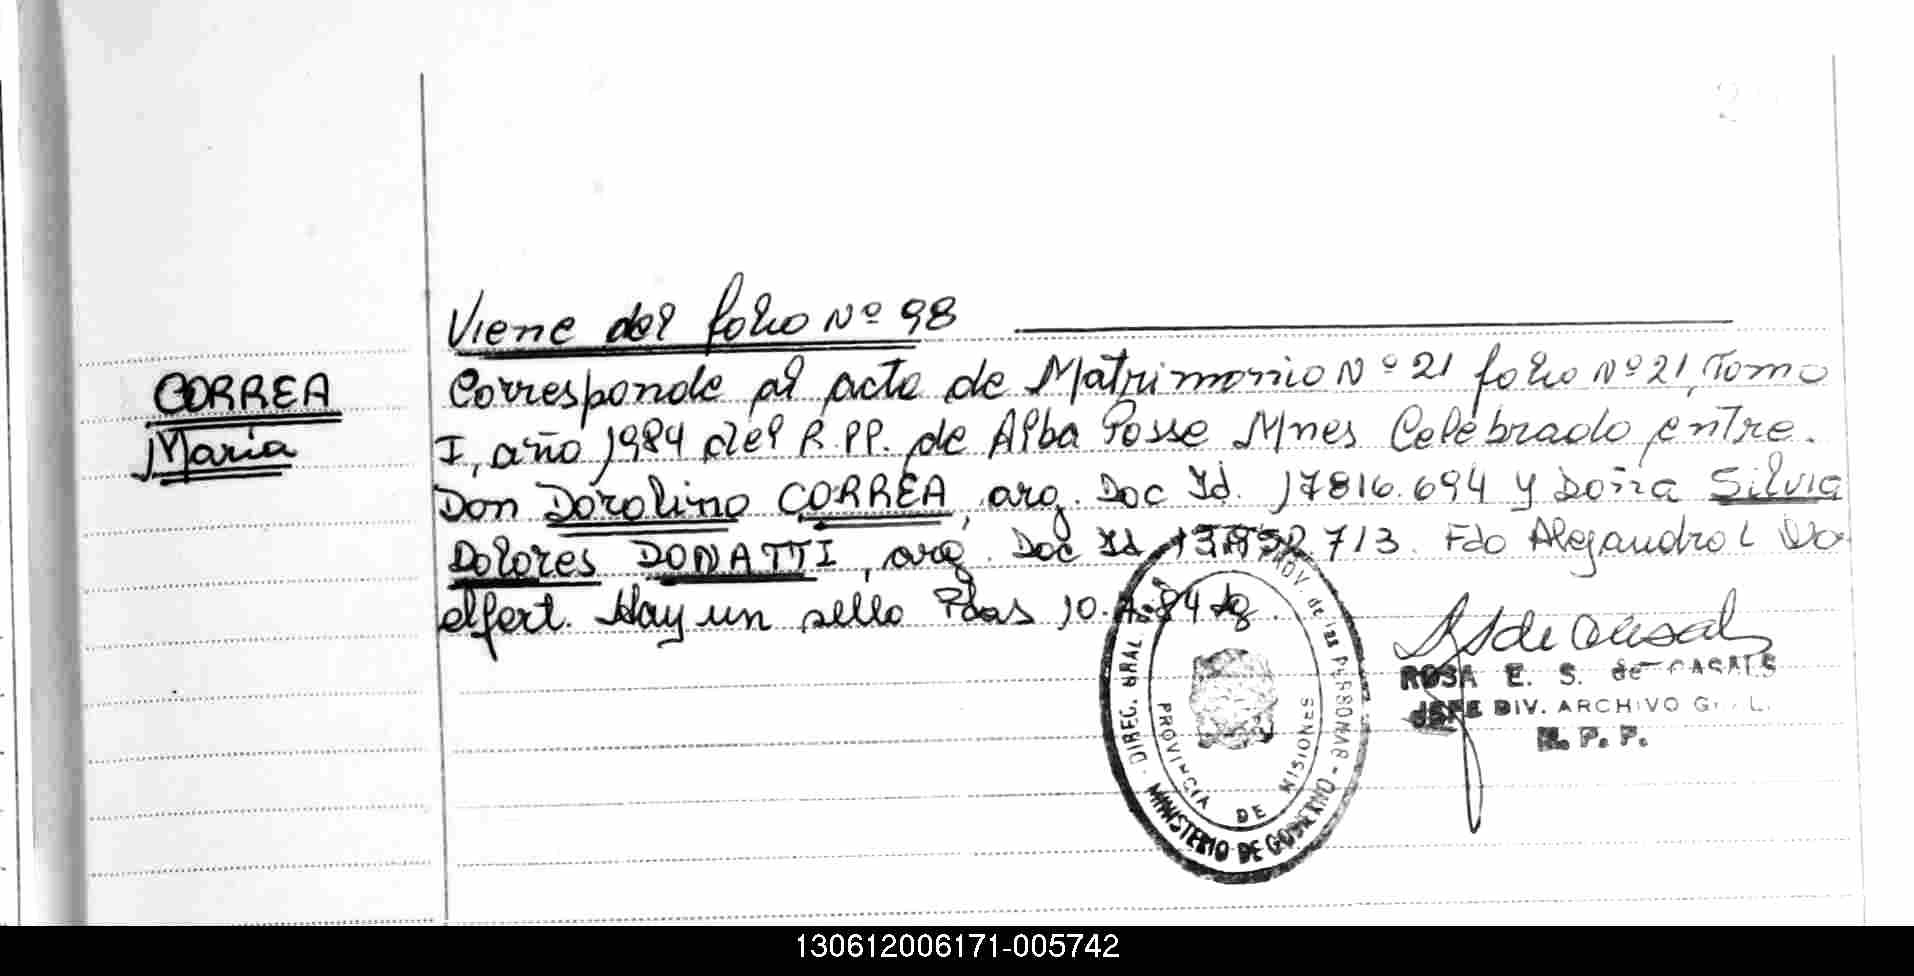 Viene del folio Nº 98
CORREA
María
Corresponde al acta de Matrimonio Nº 21 folio Nº 21, Tomo
I, año 1984 del R.PP. de Alba Posse Mnes Celebrado entre.
Don Dorolino CORREA, arg. Doc Id. 17816.694 y Doña Silvia
Dolores DONATTI, arg. Doc Id 713. Fdo Alejandro L Wo
elfert. Hay un sello Pdas 10.
DIREC. GRAL PROV. de las PERSONAS
MINISTERIO DE GOBIERNO
PROVINCIA DE MISIONES
ROSA E. S. de CASALS
JEFE DIV. ARCHIVO
R. P. P.
130612006171-005742